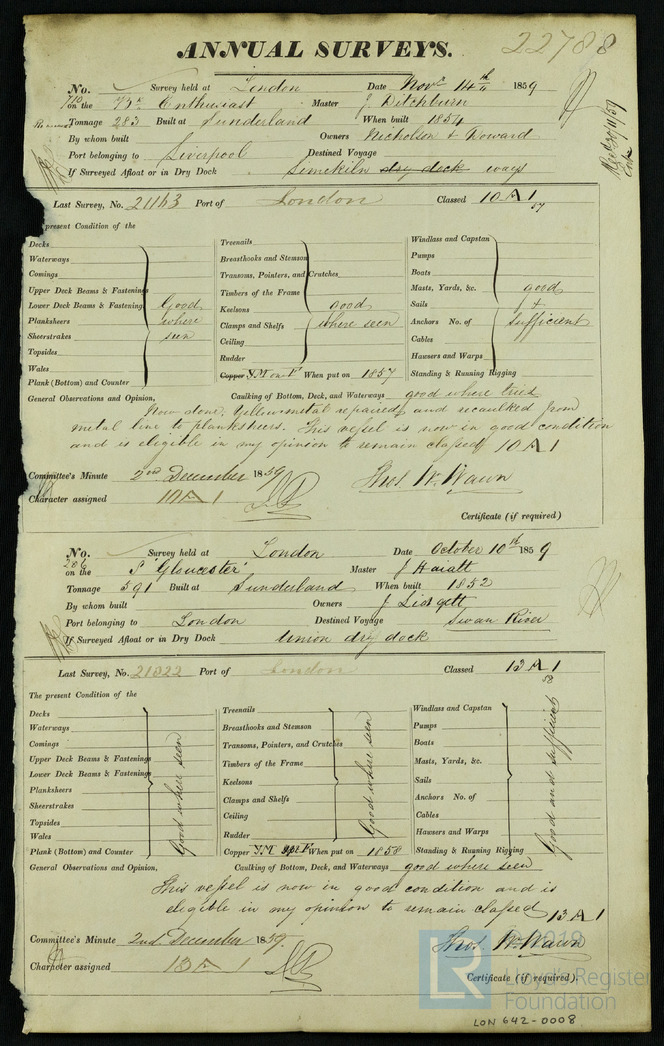 ANNUAL SURVEYS. 22788
No. Survey held at London Date Novr. 14th 1859
710 on the Enthusiast Master J. Ditchburn
Tonnage 283 Built at Sunderland When built 1854
By whom built Owners Nicholson & Howard
Port belonging to Liverpool Destined Voyage
If Surveyed Afloat or in Dry Dock Limekiln dry dock ways
Last Survey, No. 21163 Port of London Classed 10 A 1
57
present Condition of the
Decks Treenails Windlass and Capstan
Waterways Breasthooks and Stemson Pumps
Comings Transoms, Pointers, and Crutches Boats
Upper Deck Beams & Fastenings Timbers of the Frame Masts, Yards, &c. good
Lower Deck Beams & Fastenings Good Keelsons good Sails &
Planksheers where Clamps and Shelfs where seen Anchors No. of sufficient
Sheerstrakes seen Ceiling Cables
Topsides Rudder Hawsers and Warps
Wales Copper Y.M on F When put on 1857 Standing & Running Rigging
Plank (Bottom) and Counter Caulking of Bottom, Deck, and Waterways good where tried
General Observations and Opinion,
Now done, Yellowmetal repaired and recaulked from
metal line to planksheers. This vessel is now in good condition
and is eligible in my opinion to remain classed 10 A 1
Committee's Minute 2nd December 1859 Thos. W. Wawn
Character assigned 10 A 1
Certificate (if required)
No. Survey held at London Date October 10th 1859
286 on the S 'Gloucester' Master J
Tonnage 591 Built at Sunderland When built 1852
By whom built Owners J Lidgett
Port belonging to London Destined Voyage Swan River
If Surveyed Afloat or in Dry Dock Union dry dock
Last Survey, No. 21322 Port of London Classed 13 A 1
58
The present Condition of the
Decks Treenails Windlass and Capstan
Waterways Breasthooks and Stemson Pumps
Comings Transoms, Pointers, and Crutches Boats
Upper Deck Beams & Fastenings Timbers of the Frame Masts, Yards, &c.
Lower Deck Beams & Fastenings Keelsons Sails
Planksheers Good where seen Clamps and Shelfs Good where seen Anchors No. of Good and sufficient
Sheerstrakes Ceiling Cables
Topsides Rudder Hawsers and Warps
Wales Copper Y.M on F When put on 1858 Standing & Running Rigging
Plank (Bottom) and Counter Caulking of Bottom, Deck, and Waterways good where seen
General Observations and Opinion,
This vessel is now in good condition and is
eligible in my opinion to remain classed 13 A 1
Committee's Minute 2nd December 1859 Thos. W. Wawn
Character assigned 13 A 1
Certificate (if required).
© 2019
LR Lloyd's Register
Foundation
LON 642-0008